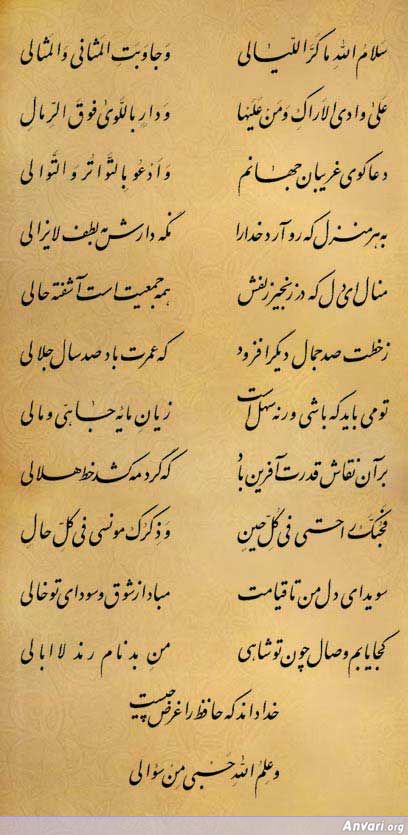 سَلامُ اللهِ ما کَرَّ اللّیالی وَ جاوَبَتِ المَثانی وَ المَثالی
عَلیٰ وادی الاَراکِ وَ مَن عَلَیها وَ دارٍ بِاللِّویٰ فَوقَ الرِّمالِ
دعاگوی غریبان جهانم وَ اَدعُو بِالتَّواتُرِ وَ التَّوالی
به هر منزل که رو آرد خدا را نگه دارش به لطف لایزالی
منال ای دل که در زنجیر زلفش همه جمعیت است آشفته حالی
ز خطت صد جمال دیگر افزود که عمرت باد صد سال جلالی
تو می باید که باشی ور نه سهل است زیانِ مایه جاهی و مالی
بر آن نقاش قدرت آفرین باد که گرد مه کشد خط هلالی
فَحُبُّکَ راحتی فی کُلِّ حینٍ وَ ذکرُکَ مونسی فی کُلِّ حالِ
سویدای دل من تا قیامت مباد از شوق و سودای تو خالی
کجا یابم وصال چون تو شاهی منِ بدنام رند لاابالی
خدا داند که حافظ را غرض چیست
وَ عِلمُ اللهِ حَسبی مِن سؤالی
Anvari.org